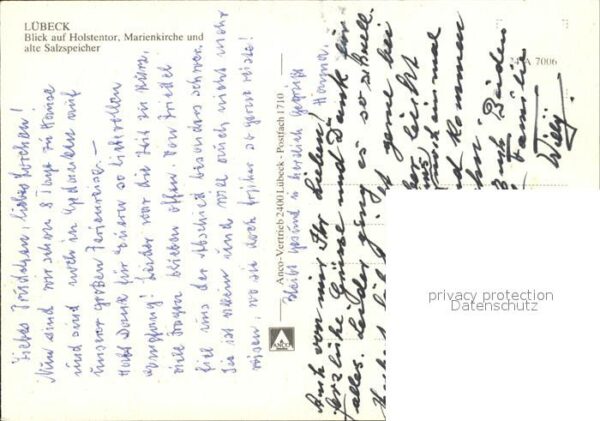 LÜBECK
Blick auf Holstentor, Marienkirche und
alte Salzspeicher
24 A 7006
Anco-Vertrieb 2400 Lübeck - Postfach 1710
ANCO
Liebes Friedelchen, liebes Lorchen!
Nun sind wir schon 8 Tage zu Hause
und sind noch in Gedanken auf
unserer großen Ferienreise. —
Habt Dank für Euern so liebevollen
Empfang! Leider war die Zeit zu kurz,
viele Fragen blieben offen. Von Friedel
fiel uns der Abschied besonders schwer.
Sie ist allein und will auch nicht mehr
reisen, wo sie doch früher so gerne reiste!
Bleibt gesund u. herzlich gegrüßt
Hanna.
Auch von mir Ihr Lieben!
herzliche Grüße und Dank für
alles. Leider ging es so schnell.
gerne bei
leicht
noch einmal
und kommen
Beiden
Familie
Willy.
privacy protection
Datenschutz